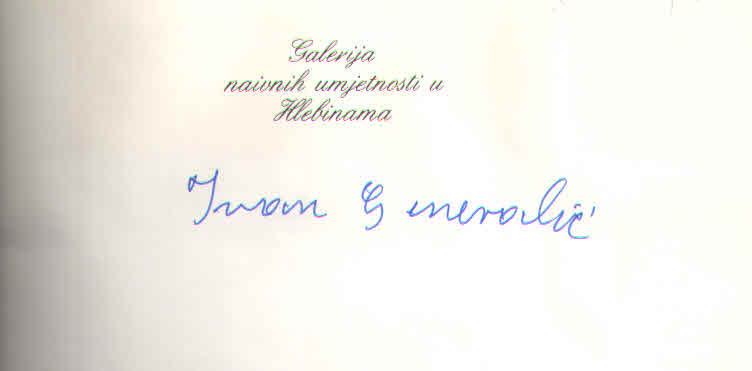 Galerija
naivnih umjetnosti u
Hlebinama
Ivan Generalić